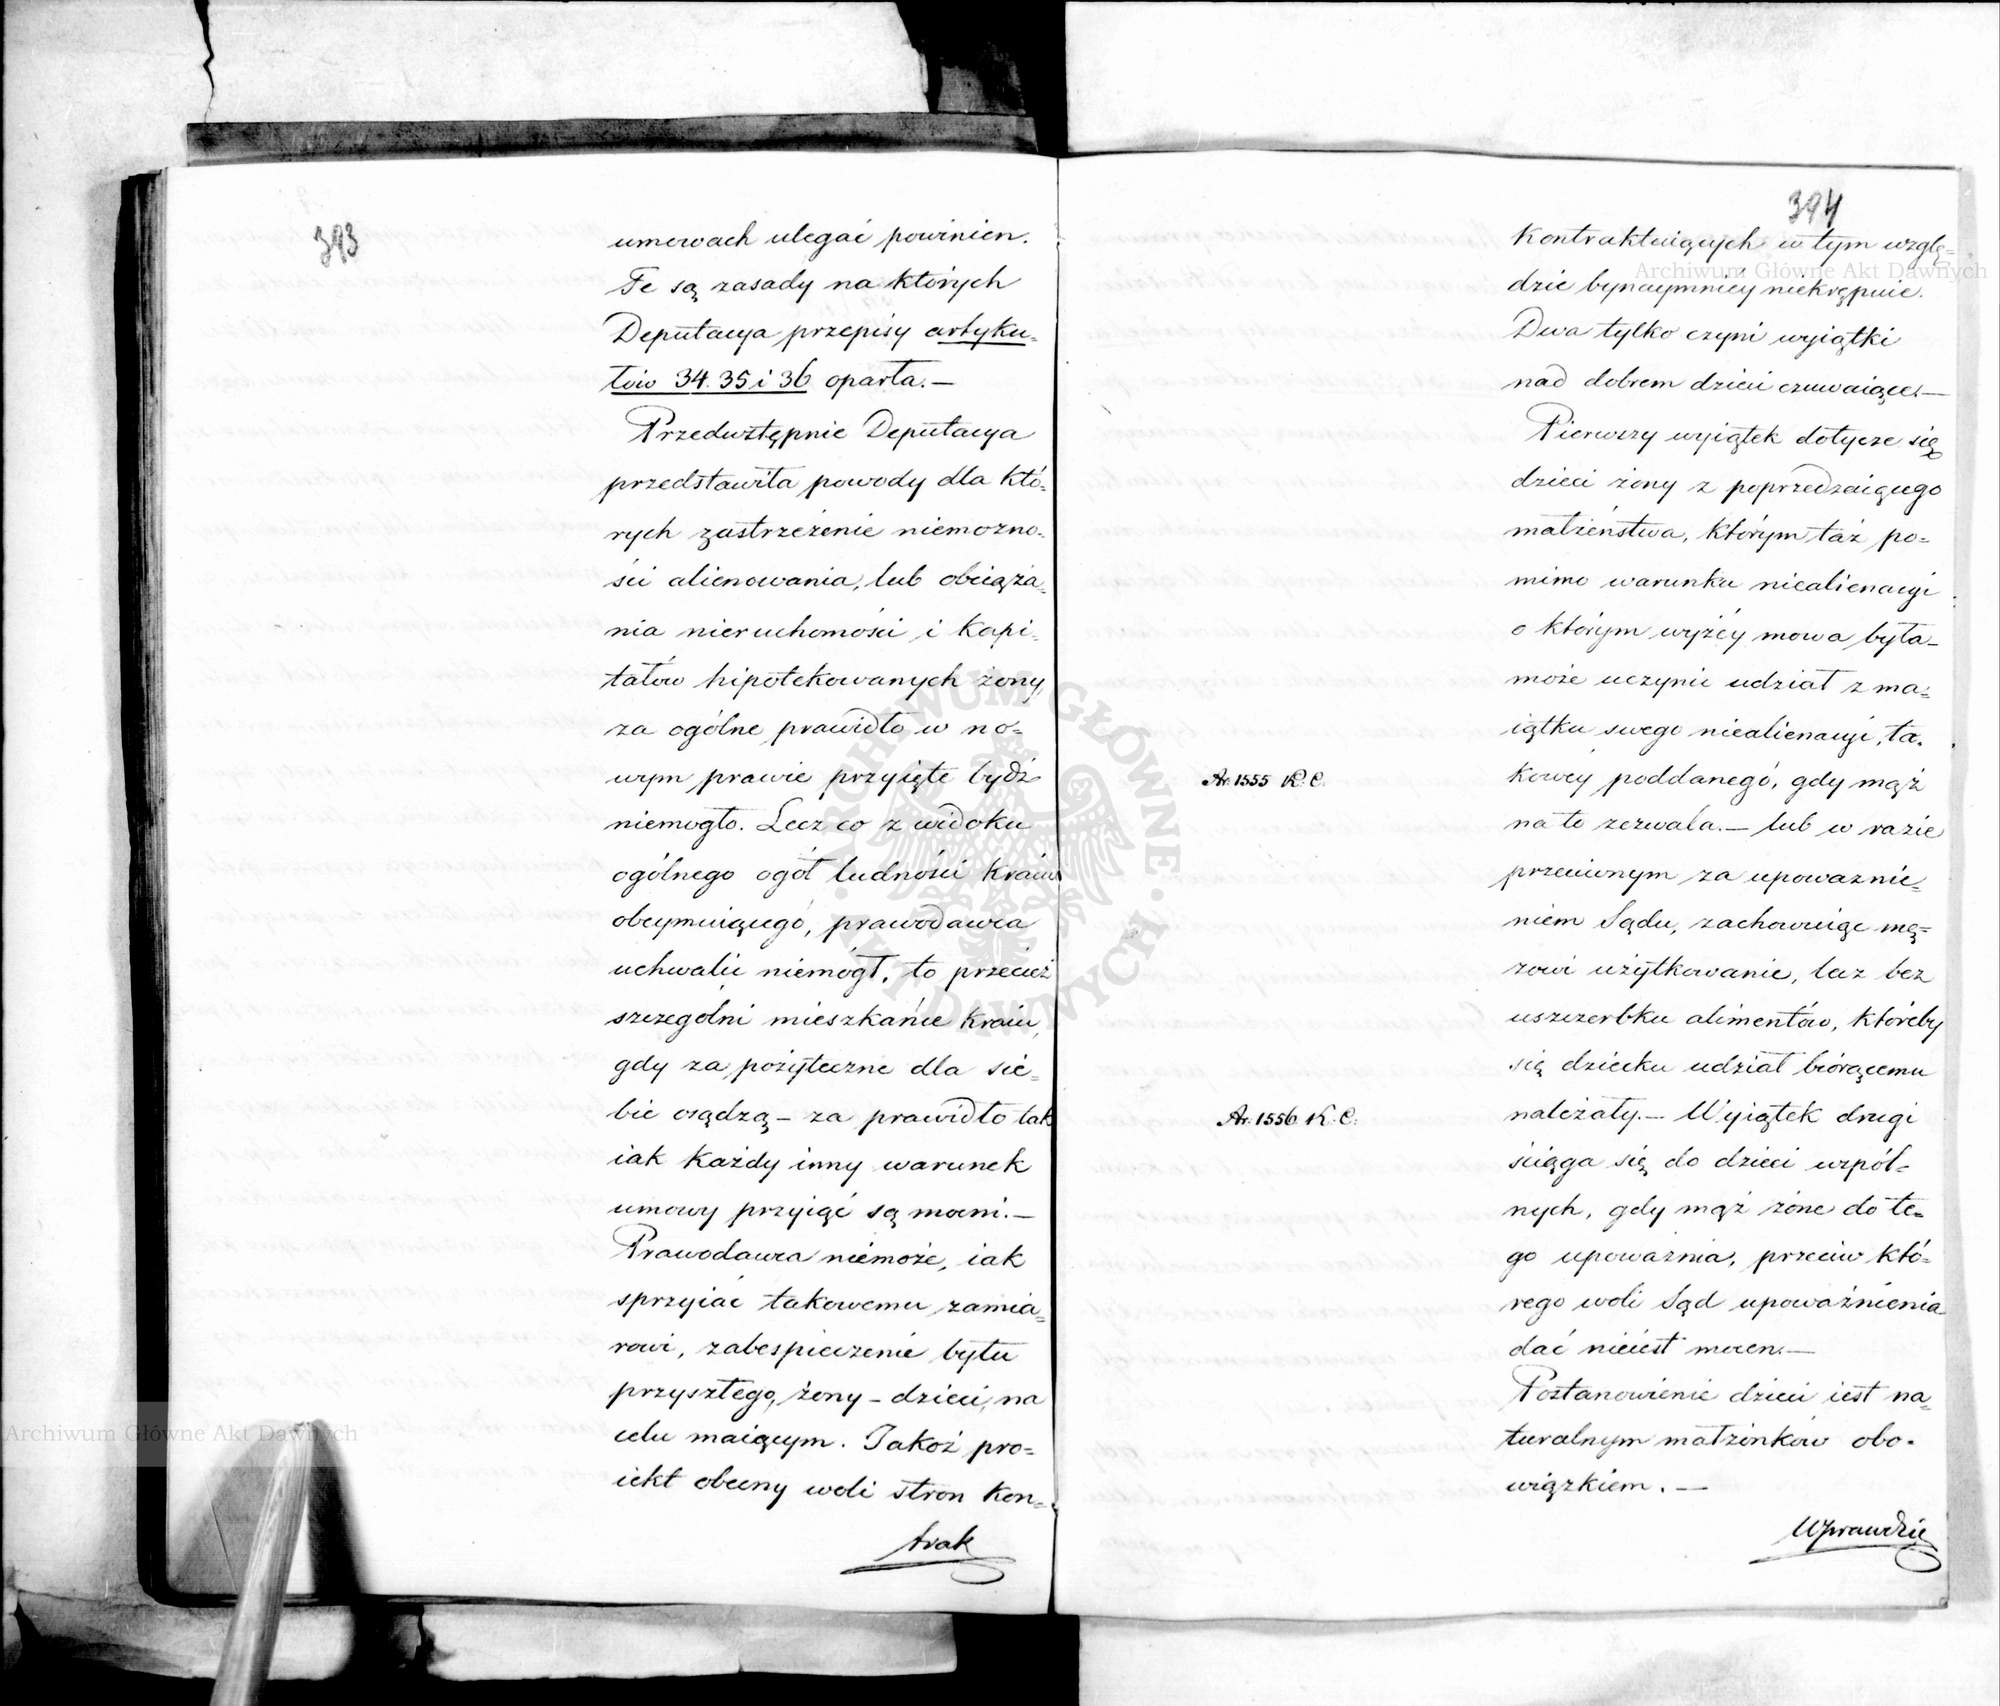 393
umowach ulegać powinien.
Te są zasady na których
Deputacya przepisy artyku-
łów 34. 35 i 36 oparła.—
Przedwstępnie Deputacya
przedstawiła powody dla któ-
rych zastrzeżenie niemożno-
ści alienowania, lub obciąża-
nia nieruchomości i kapi-
tałów hipotekowanych żony,
za ogólne prawidło w no-
wym prawie przyięte bydź
niemogło. Lecz co z widoku
ogólnego ogół ludności kraiu
obeymuiącego, prawodawca
uchwalić niemógł, to przecież
szczególni mieszkańce kraiu,
gdy za pożyteczne dla sie-
bie osądzą – za prawidło tak
iak każdy inny warunek
umowy przyiąć są mocni.—
Prawodawca niemoże, iak
sprzyiać takowemu zamia-
rowi, zabespieczenie bytu
przyszłego, żony – dzieci, na
celu maiącym. Jakoż pro-
iekt obecny woli stron kon-
trak
394
kontraktuiących w tym wzglę-
dzie bynaymniey niekrępuie.
Dwa tylko czyni wyiątki
nad dobrem dzieci czuwaiące.—
Pierwszy wyiątek dotycze się
dzieci żony z poprzedzaiącego
małżeństwa, którym taż po-
mimo warunku niealienacyi
o którym wyżey mowa była–
może uczynić udział z ma-
iątku swego niealienacyi, ta-
Ar. 1555 K. C.
kowey poddanego, gdy mąż
na to zezwala.— lub w razie
przeciwnym za upoważnie-
niem Sądu, zachowuiąc mę-
żowi użytkowanie, lecz bez
uszczerbku alimentów, któreby
się dziecku udział biorącemu
Ar. 1556 K. C.
należały.— Wyiątek drugi
ściąga się do dzieci wspól-
nych, gdy mąż żonę do te-
go upoważnia, przeciw któ-
rego woli Sąd upoważnienia
dać nieiest mocen.—
Postanowienie dzieci iest na-
turalnym małżonków obo-
wiązkiem.—
Wprawdzie
Archiwum Główne Akt Dawnych
Archiwum Główne Akt Dawnych
ARCHIWUM GŁÓWNE AKT DAWNYCH